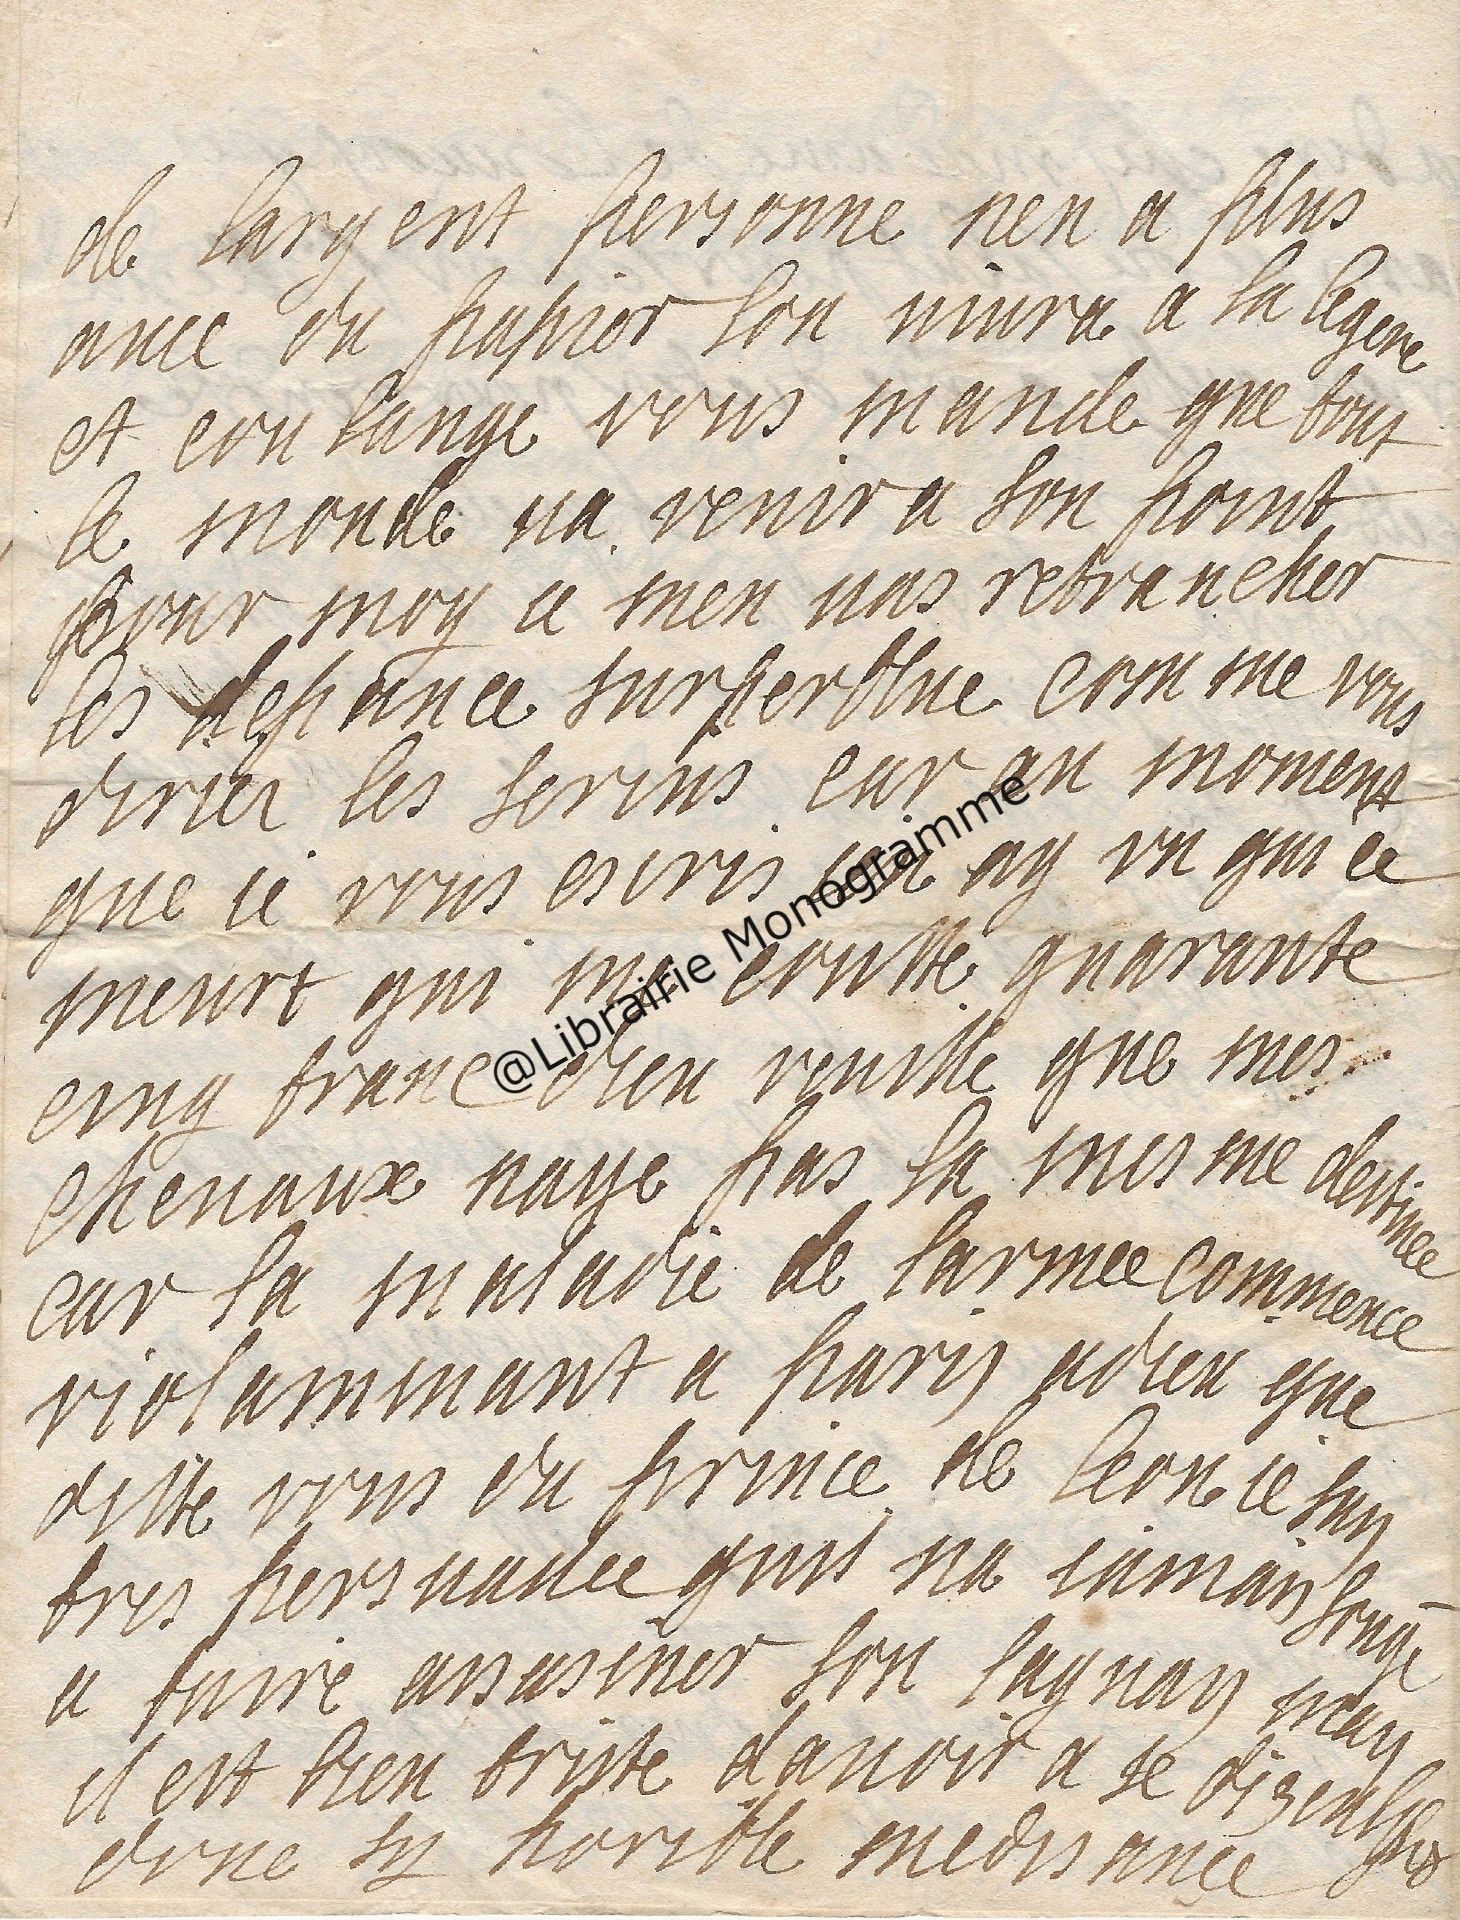 de largent personne nen a plus
auec du papier lon uiura a la legere
et coulange vous mande que tout
le monde ua venir a son point
pour moy ie men uas retrancher
les depance superflue comme vous
diriez les serins car au moment
que ie vous escris ien ay vn qui ce
meurt qui ma coutte quarante
cinq franc dieu veuille que mes
cheuaux naye pas la mesme destinee
car la maladie de larmee commence
violammant a paris adieu que
ditte vous du prince de leon ie suis
tres persuadee quil na iamais songé
a faire assasiner son laquays mays
il est bien triste dauoir a se disculper
dune sy horible medisance
@Librairie Monogramme